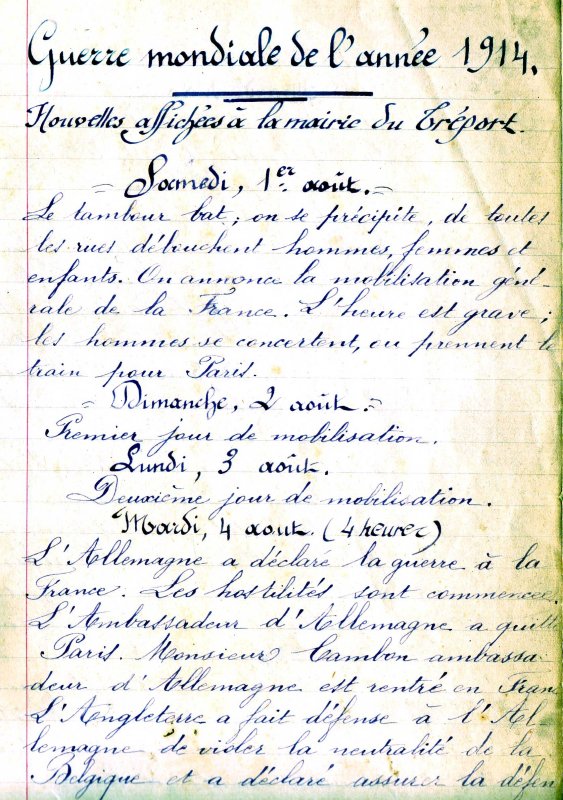 Guerre mondiale de l'année 1914.
Nouvelles affichées à la mairie du Tréport.
= Samedi, 1er août. =
Le tambour bat ; on se précipite, de toutes
les rues débouchent hommes, femmes et
enfants. On annonce la mobilisation géné-
rale de la France. L'heure est grave ;
les hommes se concertent, ou prennent le
train pour Paris.
= Dimanche, 2 août. =
Premier jour de mobilisation.
Lundi, 3 août.
Deuxième jour de mobilisation.
Mardi, 4 août. (4 heures)
L'Allemagne a déclaré la guerre à la
France. Les hostilités sont commencées
L'Ambassadeur d'Allemagne a quitté
Paris. Monsieur Cambon ambassa-
deur d'Allemagne est rentré en Fran
L'Angleterre a fait défense à l'Al-
lemagne de violer la neutralité de la
Belgique et a déclaré assurer la défen